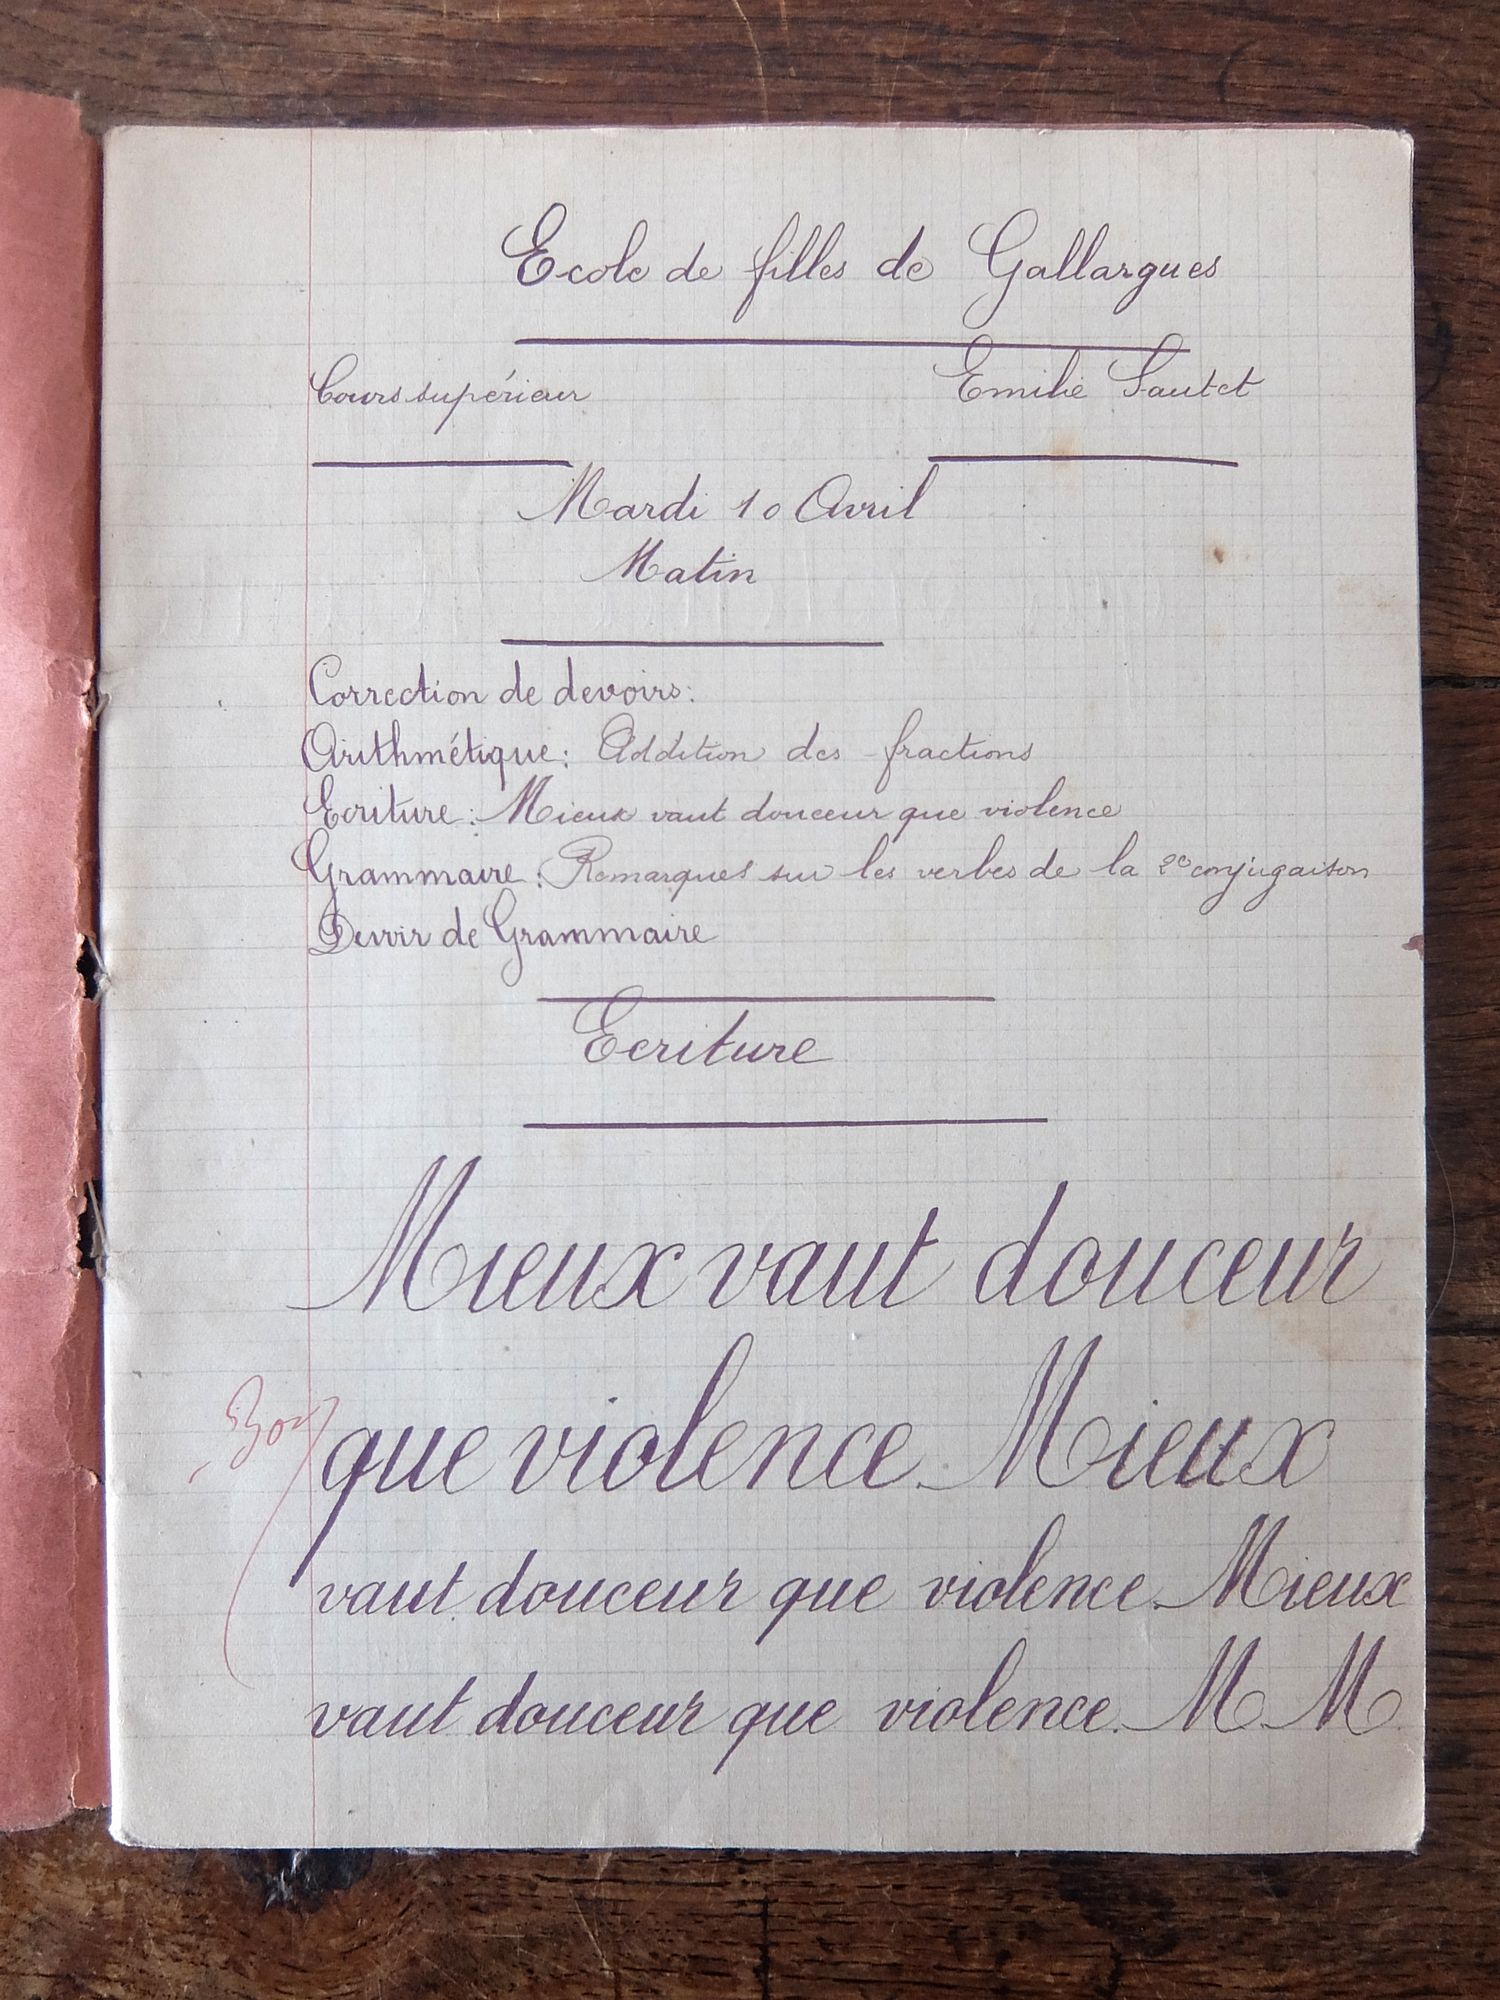 Ecole de filles de Gallargues
Cours supérieur
Emilie Sautet
Mardi 10 Avril
Matin
Correction de devoirs:
Arithmétique: Addition des fractions
Ecriture: Mieux vaut douceur que violence
Grammaire: Remarques sur les verbes de la 2e conjugaison
Devoir de Grammaire
Ecriture
Mieux vaut douceur
Bon
que violence. Mieux
vaut douceur que violence. Mieux
vaut douceur que violence. M M